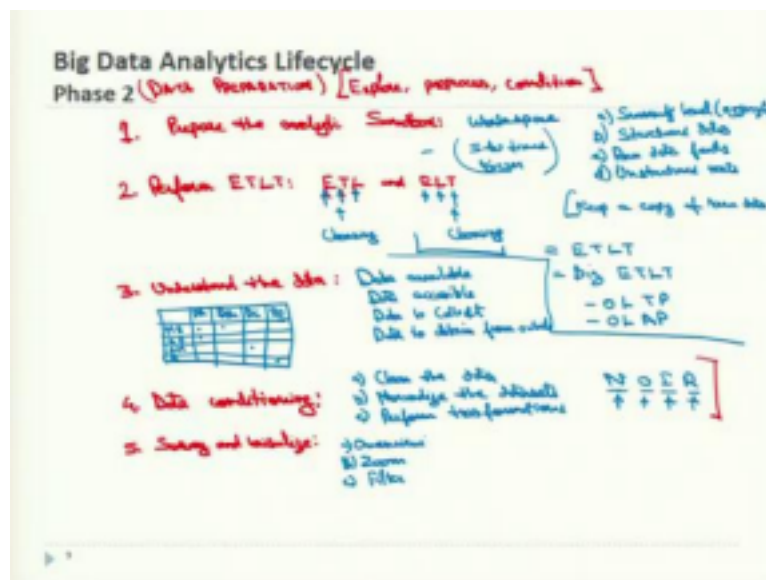 Big Data Analytics Lifecycle
Phase 2 (DATA PREPARATION) [Explore, preprocess, condition]
1. Prepare the analytic Sandbox: Workspace
a) Summary level
b) Structured data
c) Raw data feeds
d) Unstructured
2. Perform ETLT: ETL and ELT
[Keep a copy of raw data
Cleansing Cleansing
= ETLT
- Big ETLT
- OLTP
- OLAP
3. Understand the data: Data available
Data accessible
Data to collect
Data to obtain from
4. Data conditioning: a) Clean the data
b) Normalize the datasets
c) Perform transformations
N O E R
5. Survey and visualize: a) Overview
b) Zoom
c) Filter